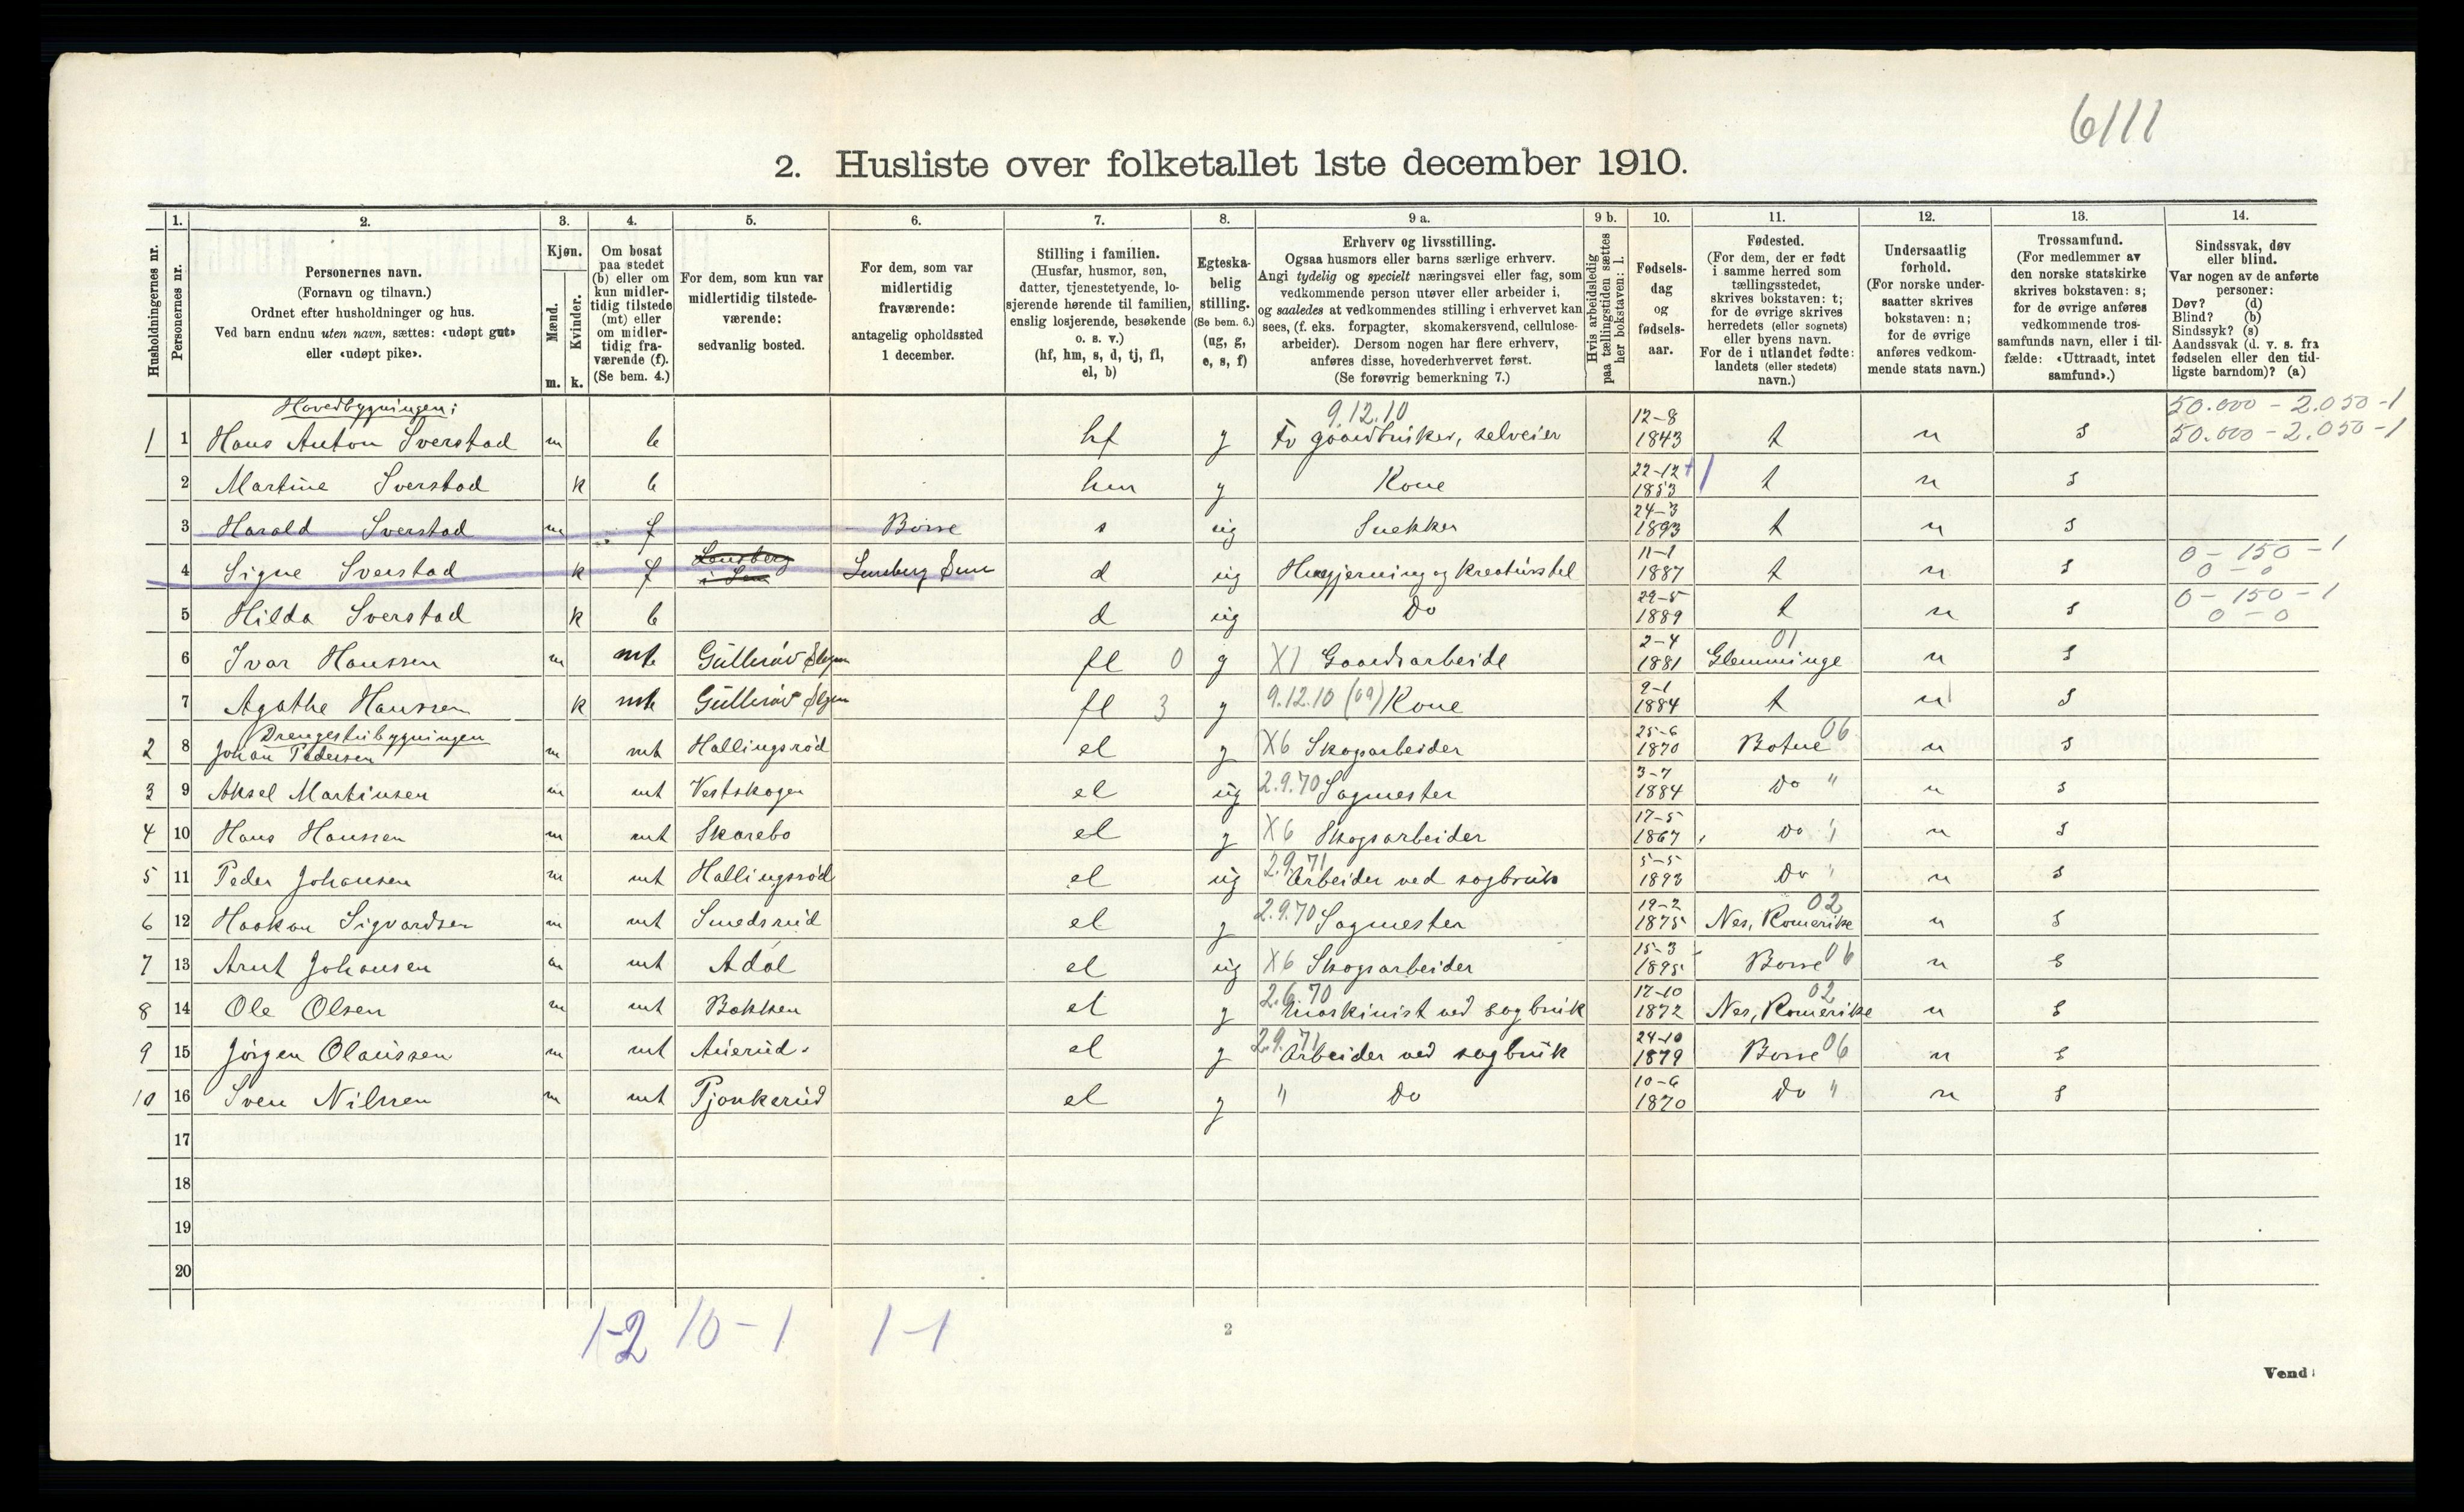 6111
2. Husliste over folketallet 1ste december 1910.
Husholdningernes nr.
1.
Personernes nr.
2.
Personernes navn.
(Fornavn og tilnavn.)
Ordnet efter husholdninger og hus.
Ved barn endnu uten navn, sættes: «udøpt gut»
eller «udøpt pike».
3.
Kjøn.
Mænd.
Kvinder.
m. k.
4.
Om bosat
paa stedet
(b) eller om
kun midler-
tidig tilstede
(mt) eller
om midler-
tidig fra-
værende (f).
(Se bem. 4.)
5.
For dem, som kun var
midlertidig tilstede-
værende:
sedvanlig bosted.
6.
For dem, som var
midlertidig
fraværende:
antagelig opholdssted
1 december.
7.
Stilling i familien.
(Husfar, husmor, søn,
datter, tjenestetyende, lo-
sjerende hørende til familien,
enslig losjerende, besøkende
o. s. v.)
(hf, hm, s, d, tj, fl,
el, b)
8.
Egteska-
belig
stilling.
(Se bem. 6.)
(ug, g,
e, s, f)
9 a.
Erhverv og livsstilling.
Ogsaa husmors eller barns særlige erhverv.
Angi tydelig og specielt næringsvei eller fag, som
vedkommende person utøver eller arbeider i,
og saaledes at vedkommendes stilling i erhvervet kan
sees, (f. eks. forpagter, skomakersvend, cellulose-
arbeider). Dersom nogen har flere erhverv,
anføres disse, hovederhvervet først.
(Se forøvrig bemerkning 7.)
9 b.
Hvis arbeidsledig
paa tællingstiden sættes
her bokstaven: l.
10.
Fødsels-
dag
og
fødsels-
aar.
11.
Fødested.
(For dem, der er født
i samme herred som
tællingsstedet,
skrives bokstaven: t;
for de øvrige skrives
herredets (eller sognets)
eller byens navn.
For de i utlandet fødte:
landets (eller stedets)
navn.)
12.
Undersaatlig
forhold.
(For norske under-
saatter skrives
bokstaven: n;
for de øvrige
anføres vedkom-
mende stats navn.)
13.
Trossamfund.
(For medlemmer av
den norske statskirke
skrives bokstaven: s;
for de øvrige anføres
vedkommende tros-
samfunds navn, eller i til-
fælde: «Uttraadt, intet
samfund».)
14.
Sindssvak, døv
eller blind.
Var nogen av de anførte
personer:
Døv? (d)
Blind? (b)
Sindssyk? (s)
Aandssvak (d. v. s. fra
fødselen eller den tid-
ligste barndom)? (a)
Hovedbygningen: 9.12.10 12-8 50.000 - 2.050 - 1
1 1 Hans Anton Sverstad m b hf g Fv gaardbruker, selveier 1843 t n s 50.000 - 2.050 - 1
22-12
2 Martine Sverstad k b hm g Kone 1853 t n s
24-3
3 Harald Sverstad m f Borre s ug Snekker 1893 t n s
11-1 0 - 150 - 1
4 Signe Sverstad k f d ug Husgjerning og kreaturstel 1887 t n s 0 - 0
22-5 0 - 150 - 1
5 Hilda Sverstad k b d ug Do 1889 t n s 0 - 0
2-4 01
6 Ivar Hanssen m mt fl 0 g X1 Gaardsarbeide 1881 Glemminge n s
9-1
7 Agathe Hanssen k mt fl 3 g 9.12.10 (09) Kone 1884 t n s
Drengestubygningen 25-6 06
2 8 Johan Pedersen m mt Hallingsrød el g X6 Skogsarbeider 1870 Botne n s
3-7
3 9 Aksel Martinsen m mt Vestskogen el ug 2.9.70 Sagmester 1884 Do " n s
17-5
4 10 Hans Hanssen m mt Skarebo el g X6 Skogsarbeider 1867 Do " n s
2.9.71 5-5
5 11 Peder Johansen m mt Hallingsrød el ug Arbeider ved sagbruk 1893 Do " n s
19-2 02
6 12 Haakon Sigvardsen m mt Smedsrud el g 2.9.70 Sagmester 1875 Nes, Romerike n s
15-3
7 13 Arnt Johansen m mt Adal el ug X6 Skogsarbeider 1895 Borre 06 n s
2.6.70 17-10 02
8 14 Ole Olsen m mt Bakken el g Maskinist ved sagbruk 1872 Nes, Romerike n s
2.9.71 24-10
9 15 Jörgen Olaussen m mt Auerud el g Arbeider ved sagbruk 1879 Borre 06 n s
10-6
10 16 Sven Nilssen m mt Pjonkerud el g " Do 1870 Do " n s
17
18
19
20
1-2 10-1 1-1
2
Vend!